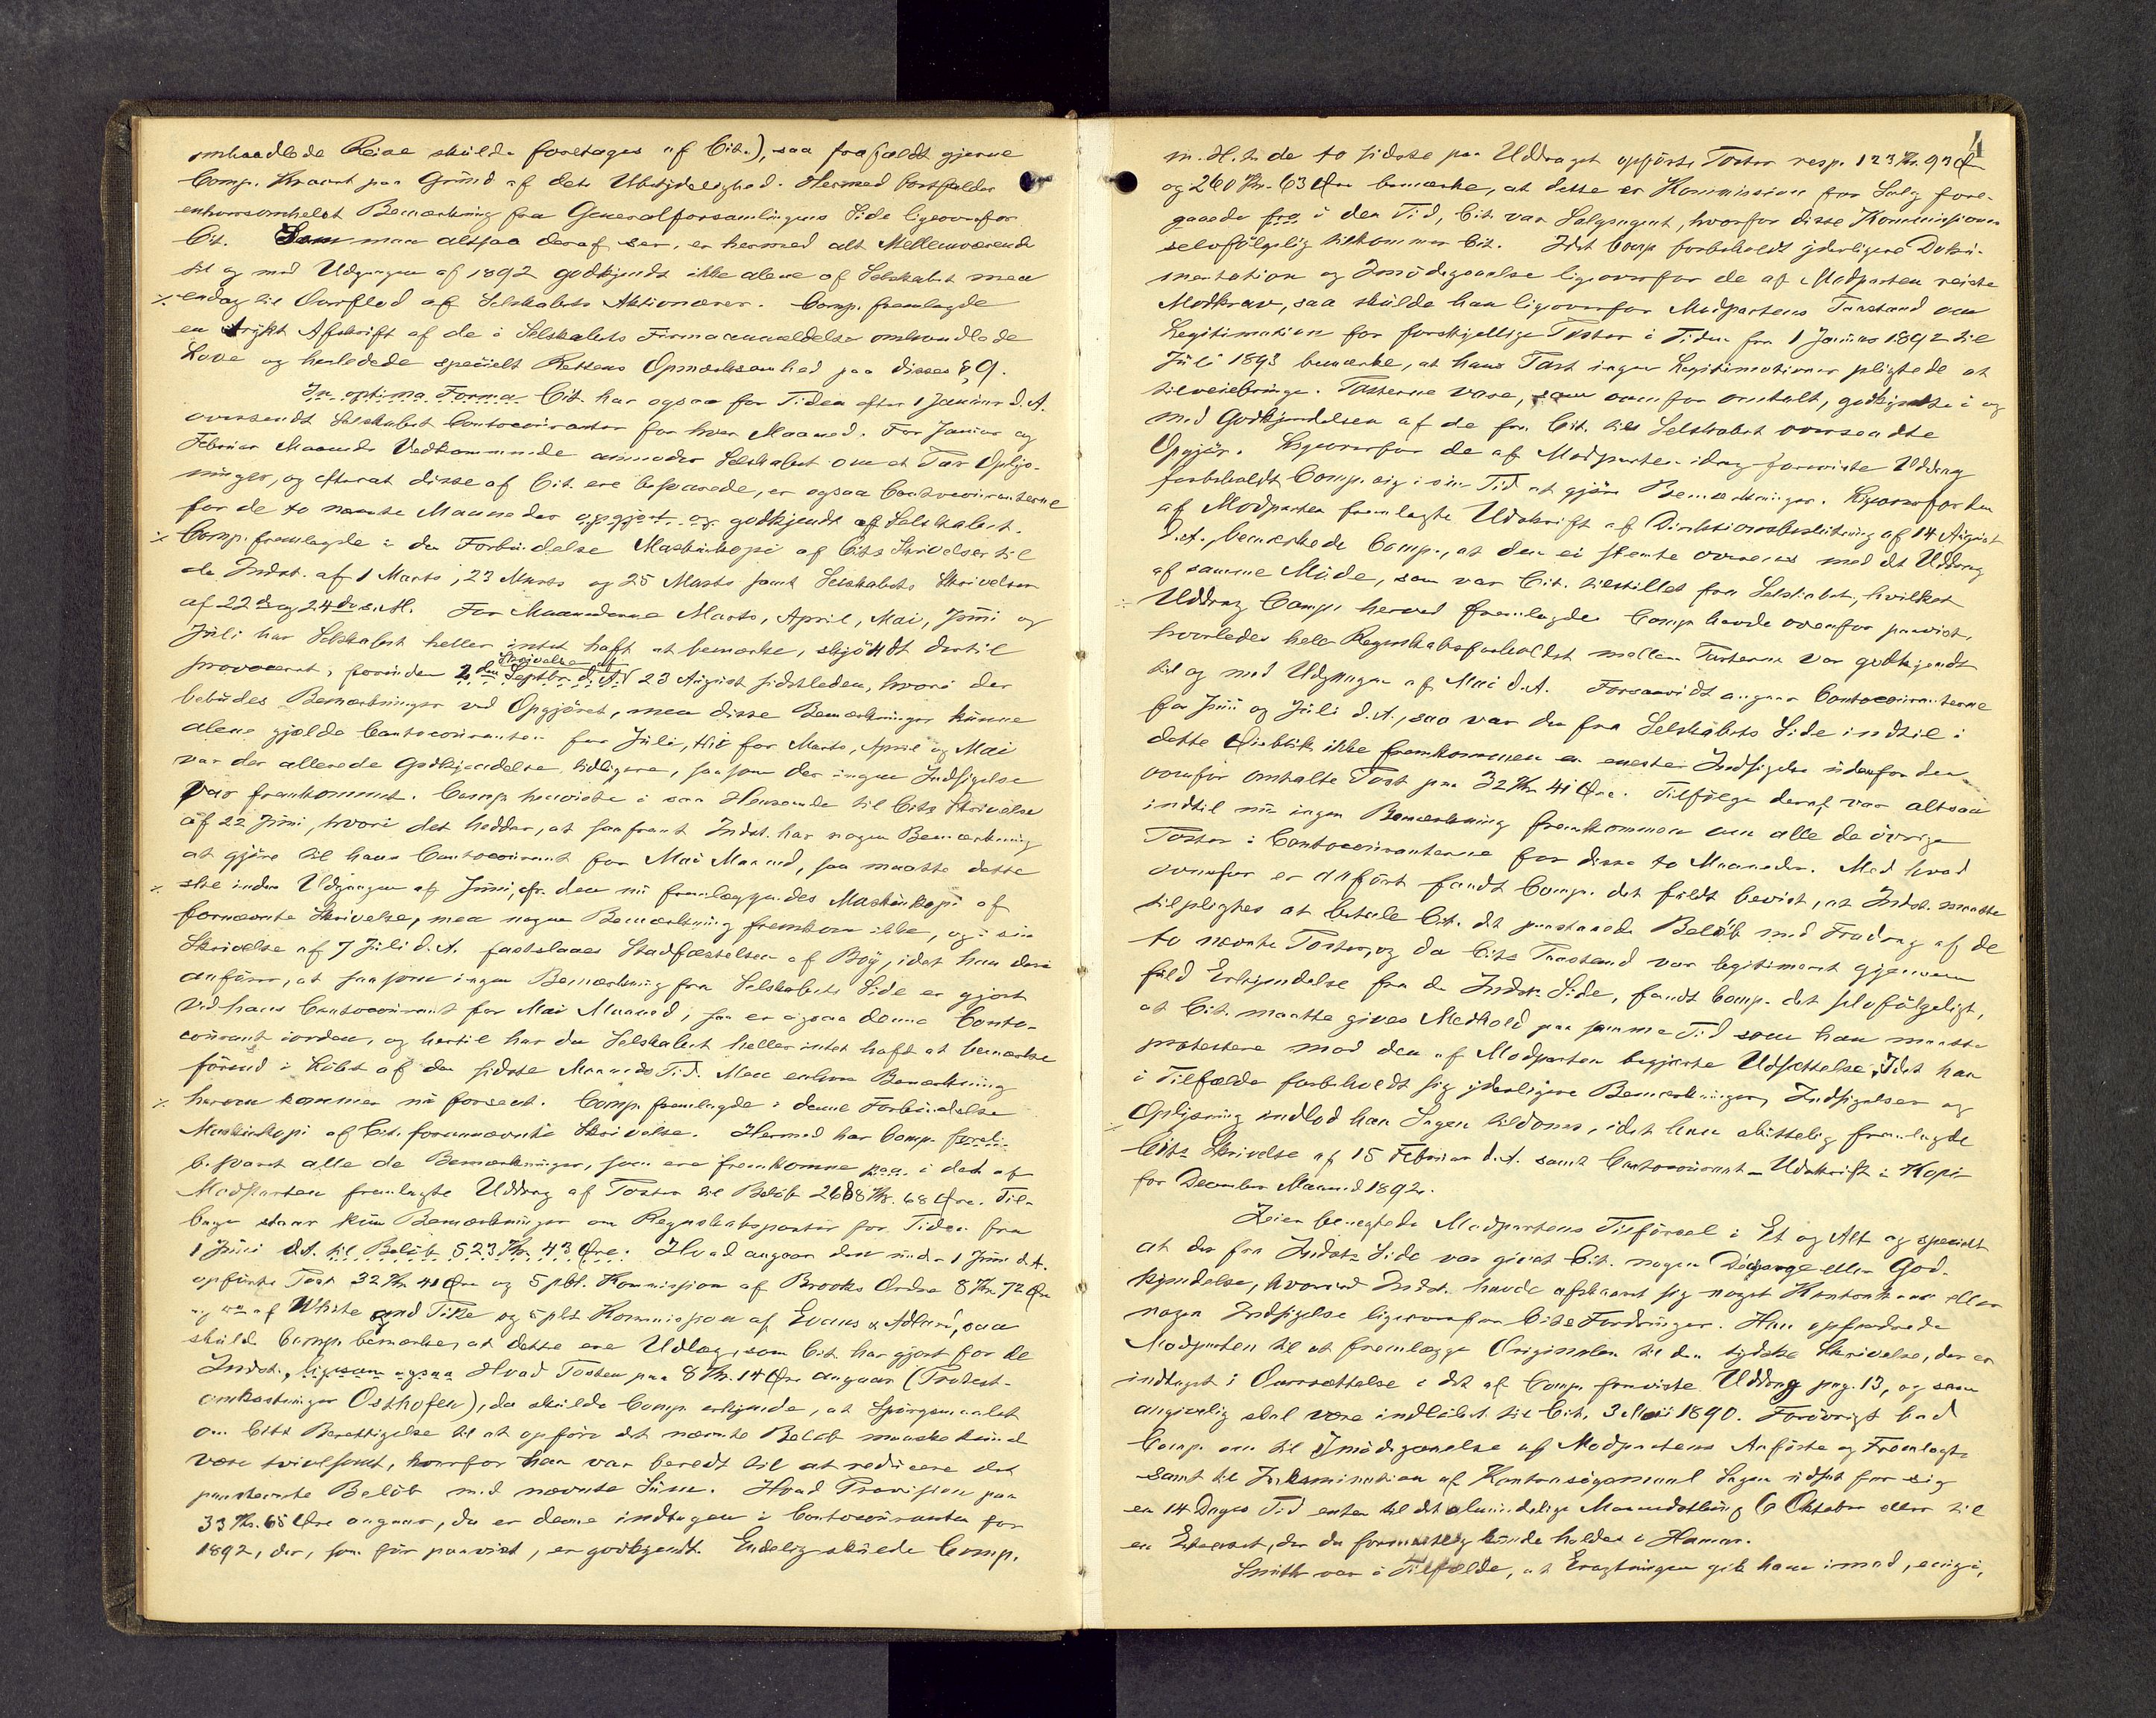 omhandlede Reise skulde foretages af Cit.), saa frafaldt gjerne
Comp. Kravet paa Grund af dets Ubetydelighed. Hermed bortfalder
enhversomhelst Bemærkning fra Generalforsamlingens Side ligeoverfor
Cit. Som man altsaa deraf ser, er hermed alt Mellemværende
til og med Udgangen af 1892 godkjendt ikke alene af Selskabet men
·/. endog til Overflod af Selskabets Aktionærer. Comp. fremlagde
en trykt Afskrift af de i Selskabets Firmaanmeldelse omhandlede
Love og henledede specielt Rettens Opmærksomhed paa disses § 9.
In optima Forma Cit. har ogsaa for Tiden efter 1 Januar d. A.
oversendt Selskabet Contocouranter for hver Maaned. For Januar og
Februar Maaneds Vedkommende anmoder Selskabet om et Par Oplys-
ninger, og efterat disse af Cit. ere besvarede, er ogsaa Contocouranterne
for de to nævnte Maaneder opgjort og godkjendt af Selskabet.
·/. Comp. fremlagde i den Forbindelse Maskinkopi af Cits Skrivelser til
de Indst. af 1 Marts, 23 Marts og 25 Marts samt Selskabets Skrivelser
af 22de og 24de s. M. For Maanederne Marts, April, Mai, Juni og
Juli har Selskabet heller intet haft at bemærke, skjöndt dertil
Skrivelse af
provoceret, forinden 2den Septbr. d. A. 23 August sidstleden, hvori der
bebudes Bemærkninger ved Opgjöret, men disse Bemærkninger kunne
alene gjælde Contocouranten for Juli, thi for Marts, April og Mai
var der allerede Godkjendelse tidligere, saasom der ingen Indsigelse
var fremkommet. Comp. henviste i saa Henseende til Cits Skrivelse
af 22 Juni, hvori det hedder, at saafremt Indst. har nogen Bemærkning
at gjöre til hans Contocourant for Mai Maaned, saa maatte dette
·/. ske inden Udgangen af Juni, cfr. den nu fremlæggendes Maskinkopi af
fornævnte Skrivelse, men nogen Bemærkning fremkom ikke, og i sin
Skrivelse af 7 Juli d. A. fastslaaes Stadfæstelsen af Boÿ, idet han deri
anförer, at saasom ingen Bemærkning fra Selskabets Side er gjort
ved hans Contocourant for Mai Maaned, saa er ogsaa denne Conto-
courant iorden, og hertil har da Selskabet heller intet haft at bemærke
förend i Löbet af den sidste Maaneds Tid. Men enhver Bemærkning
·/. herom kommer nu forsent. Comp. fremlagde i denne Forbindelse
Maskinkopi af Cits forannævnte Skrivelse. Hermed har Comp.
besvaret alle de Bemærkninger, som ere fremkomne paa i det af
Modparten fremlagte Uddrag af Poster til Belöb 2688 Kr. 68 Öre. Til-
bage staar kun Bemærkninger om Regnskabsposter for Tiden fra
1 Juni d. A. til Belöb 523 Kr. 43 Öre. Hvad angaar den under 1 Juni d. A.
opförte Post 32 Kr 41 Öre og 5 pCt. Kommission af Brooks Ordre 8 Kr. 72 Öre
og af White and Tike og 5 pCt Kommission af Evans & Adlard, saa
skulde Comp. bemærke, at dette ere Udlæg, som Cit. har gjort for de
Indst., ligesom ogsaa Hvad Posten paa 8 Kr. 14 Öre angaar (Protest-
omkostninger Osthofen), da skulde Comp. erkjende, at Spörgsmaalet
om Cits Berettigelse til at opföre det nævnte Belöb maaske kunde
være tvivlsomt, hvorfor han var beredt til at reducere det
paastævnte Belöb med nævnte Sum. Hvad Provision paa
33 Kr. 65 Öre angaar, da er denne indtagen i Contocouranten for
1892, der, som för paavist, er godkjendt. Endelig skulde Comp.
4
m. H. t. de to sidste paa Uddraget opförte Poster resp. 123 Kr. 93 Öre
og 260 Kr. 63 Öre bemærke, at dette er Kommission for Salg fore-
gaaede fra i den Tid, Cit. var Salgsagent, hvorfor disse Kommissioner
selvfölgelig tilkommer Cit. Idet Comp forbeholdt yderligere Doku-
mentation og Imödegaaelse ligeoverfor de af Modparten reiste
Modkrav, saa skulde han ligeoverfor Modpartens Paastand om
Legitimation for forskjellige Poster i Tiden fra 1 Januar 1892 til
Juli 1893 bemærke, at hans Part ingen Legitimationer pligtede at
tilveiebringe. Posterne vare, som ovenfor omtalt, godkjendte i og
med Godkjendelsen af de fra Cit. til Selskabet oversendte
Opgjör. Ligeoverfor de af Modparten idag foreviste Uddrag
forbeholdt Comp. sig i sin Tid at gjöre Bemærkninger. Ligeoverfor den
af Modparten fremlagte Udskrift af Direktionsbeslutning af 14 August
d. A., bemærkede Comp., at den ei stemte overens med det Uddrag
af samme Möde, som var Cit. tilstillet fra Selskabet, hvilket
·/. Uddrag Comp. herved fremlagde. Comp havde ovenfor paavist,
hvorledes hele Regnskabsforholdet mellem Parterne var godkjendt
til og med Udgangen af Mai d. A. Forsaavidt angaar Contocouranterne
for Juni og Juli d. A., saa var der fra Selskabets Side indtil i
dette Öieblik ikke fremkommen en eneste Indsigelse udenfor den
ovenfor omtalte Post paa 32 Kr. 41 Öre. Tilfölge deraf var altsaa
indtil nu ingen Bemærkning fremkommen om alle de övrige
Poster i Contocouranterne for disse to Maaneder. Med hvad
ovenfor er anfört fandt Comp. det fuldt bevist, at Indst. maatte
tilpligtes at betale Cit. det paastaaede Belöb med Fradrag af de
to nævnte Poster, og da Cits Paastand var legitimeret gjennem
fuld Erkjendelse fra de Indst. Side, fandt Comp. det selvfölgeligt,
at Cit. maatte gives Medhold paa samme Tid som han maatte
protestere mod den af Modparten begjærte Udsættelse. Idet han
i Tilfælde forbeholdt sig yderligere Bemærkninger, Indsigelser og
·/. Oplysning indlod han Sagen tildoms, idet han sluttelig fremlagde
Cits Skrivelse af 15 Februar d. A. samt Contocourant-Udskrift i Kopi
for December Maaned 1892.
Zeier benegtede Modpartens Tilförsel i Et og Alt og specielt
at der fra Indsts Side var givet Cit. nogen Decharge eller God-
kjendelse, hvorved Indst. havde afskaaret sig noget Kontrakrav eller
nogen Indsigelse ligeoverfor Cits Fordringer. Han opfordrede
Modparten til at fremlægge Originalen til den tydske Skrivelse, der er
indtaget i Oversættelse i det af Comp. foreviste Uddrag pag. 13, og som
angivelig skal være indlöbet til Cit. 3 Mai 1890. Forövrigt bad
Comp. om til Imödegaaelse af Modpartens Anförte og Fremlagte
samt til Inkamination af Kontrasögsmaal Sagen udsat for sig
en 14 Dages Tid enten til det almindelige Maanedsthing 6 Oktober eller til
en Extraret, der da formentlig kunde holdes i Hamar.
Smith var i Tilfælde, at Eragtningen gik ham imod, enig i,